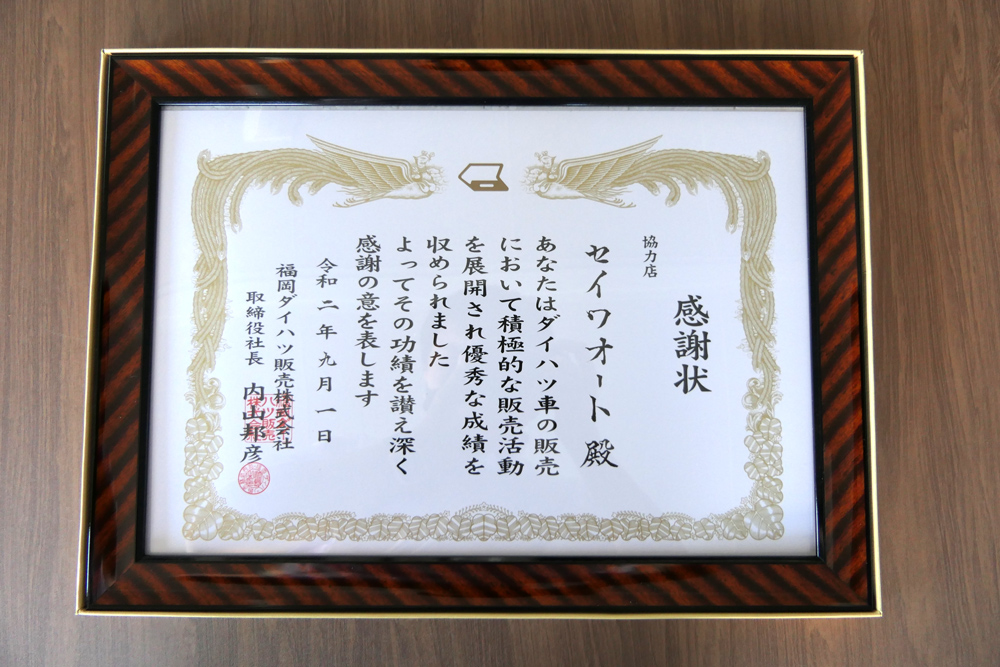 感謝状
協力店
セイワオート 殿
あなたはダイハツ車の販売
において積極的な販売活動
を展開され優秀な成績を
収められました
よってその功績を讃え深く
感謝の意を表します
令和二年九月一日
福岡ダイハツ販売株式会社
取締役社長 内山邦彦